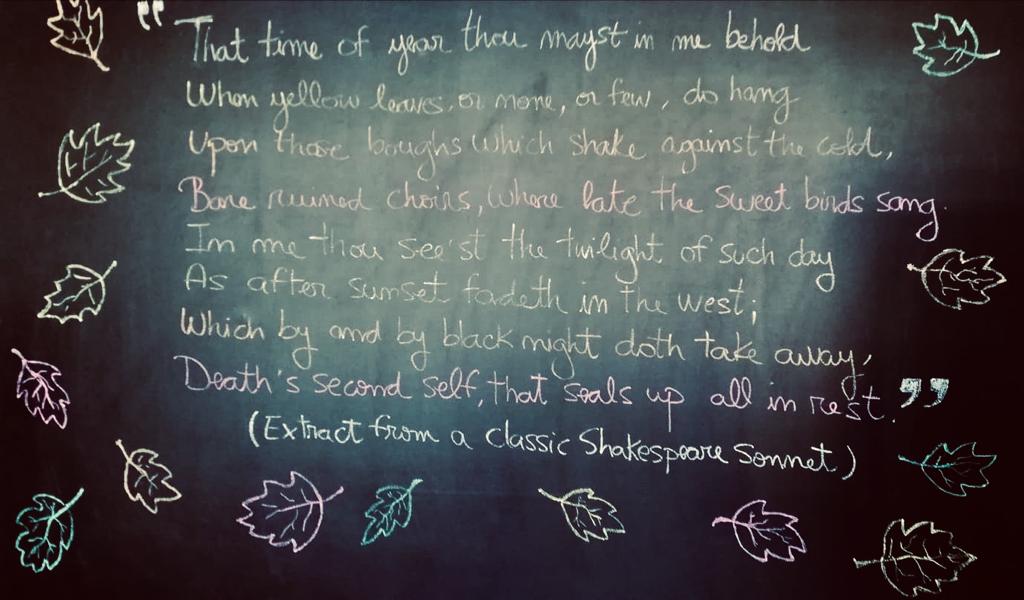 "That time of year thou mayst in me behold
When yellow leaves, or none, or few, do hang
Upon those boughs which shake against the cold,
Bare ruined choirs, where late the sweet birds sang.
In me thou see'st the twilight of such day
As after sunset fadeth in the west;
Which by and by black night doth take away,
Death's second self, that seals up all in rest."
(Extract from a classic Shakespeare Sonnet)